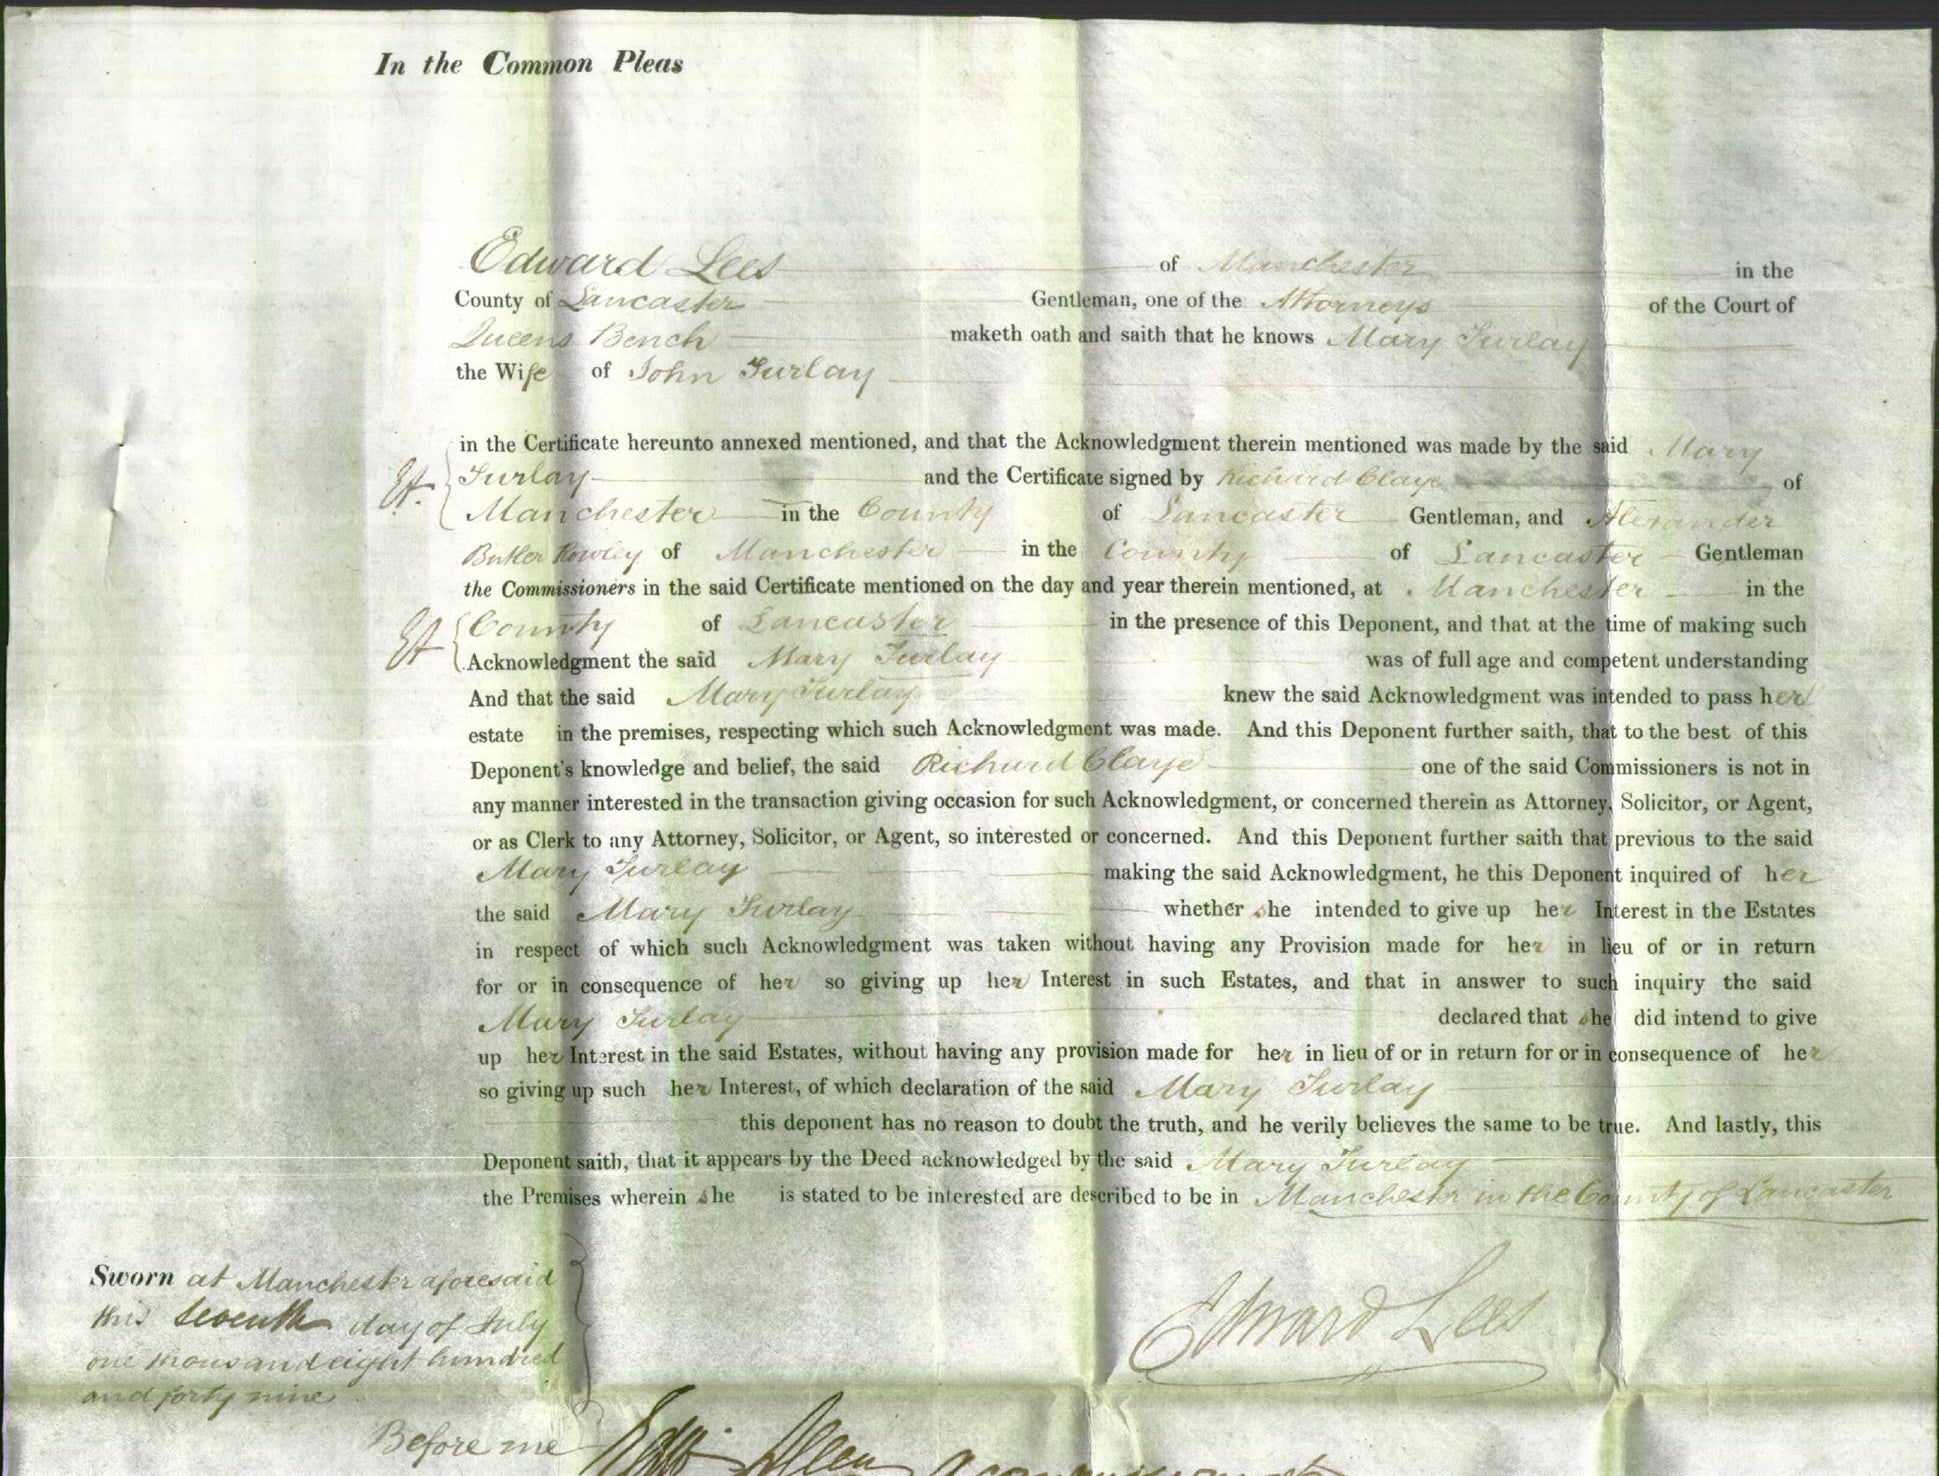 In the Common Pleas
Edward Lees of Manchester in the
County of Lancaster Gentleman, one of the Attorneys of the Court of
Queens Bench maketh oath and saith that he knows Mary Turlay
the Wife of John Turlay
in the Certificate hereunto annexed mentioned, and that the Acknowledgment therein mentioned was made by the said Mary
Turlay and the Certificate signed by Richard Claye of
Manchester in the County of Lancaster Gentleman, and Alexander
Butler Rowley of Manchester in the County of Lancaster Gentleman
the Commissioners in the said Certificate mentioned on the day and year therein mentioned, at Manchester in the
County of Lancaster in the presence of this Deponent, and that at the time of making such
Acknowledgment the said Mary Turlay was of full age and competent understanding
And that the said Mary Turlay knew the said Acknowledgment was intended to pass her
estate in the premises, respecting which such Acknowledgment was made. And this Deponent further saith, that to the best of this
Deponent's knowledge and belief, the said Richard Claye one of the said Commissioners is not in
any manner interested in the transaction giving occasion for such Acknowledgment, or concerned therein as Attorney, Solicitor, or Agent,
or as Clerk to any Attorney, Solicitor, or Agent, so interested or concerned. And this Deponent further saith that previous to the said
Mary Turlay making the said Acknowledgment, he this Deponent inquired of her
the said Mary Turlay whether she intended to give up her Interest in the Estates
in respect of which such Acknowledgment was taken without having any Provision made for her in lieu of or in return
for or in consequence of her so giving up her Interest in such Estates, and that in answer to such inquiry the said
Mary Turlay declared that she did intend to give
up her Interest in the said Estates, without having any provision made for her in lieu of or in return for or in consequence of her
so giving up such her Interest, of which declaration of the said Mary Turlay
this deponent has no reason to doubt the truth, and he verily believes the same to be true. And lastly, this
Deponent saith, that it appears by the Deed acknowledged by the said Mary Turlay
the Premises wherein she is stated to be interested are described to be in Manchester in the County of Lancaster
Sworn at Manchester aforesaid
this seventh day of July
one thousand eight hundred
and forty nine
Edward Lees
Before me